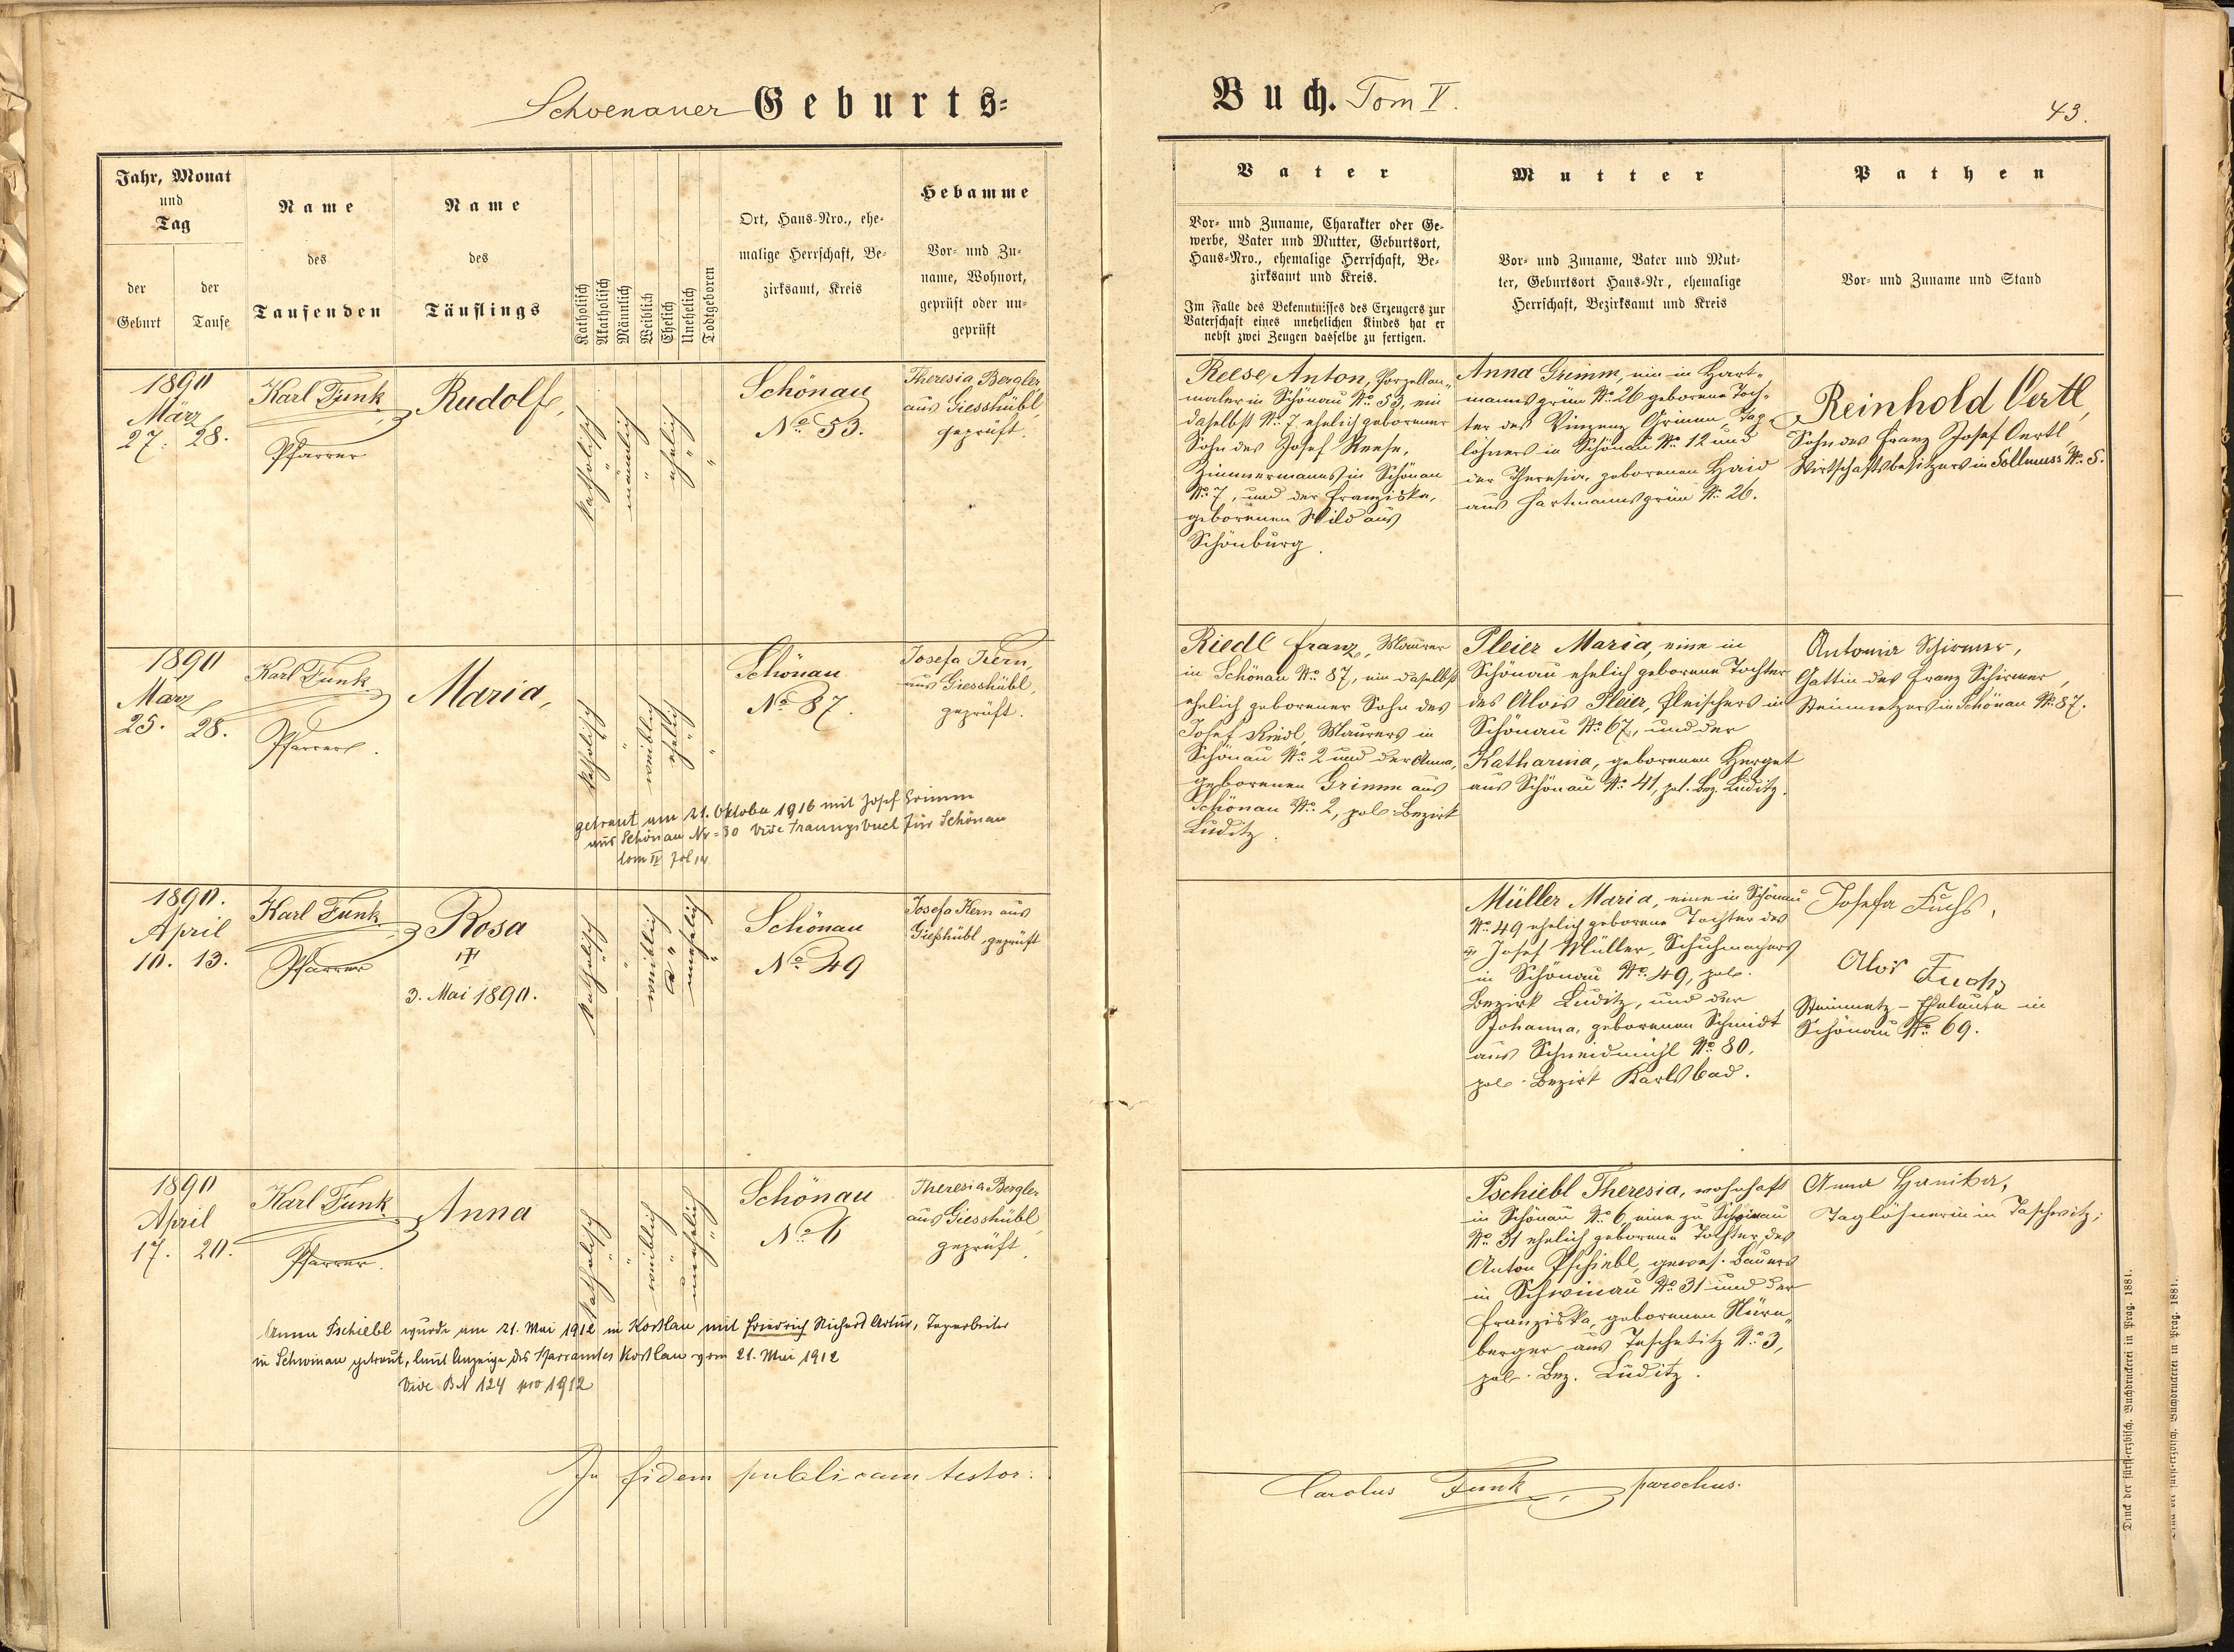 Schoenauer Geburts=
Buch. Tom V.
43.
Jahr, Monat
und
Tag
der
Geburt
der
Taufe
Name
des
Taufenden
Name
des
Täuflings
Katholisch
Akatholisch
Männlich
Weiblich
Ehelich
Unehelich
Todtgeboren
Ort, Haus-Nro., ehe-
malige Herrschaft, Be-
zirksamt, Kreis
Hebamme
Vor- und Zu-
name, Wohnort,
geprüft oder un-
geprüft
Vater
Vor- und Zuname, Charakter oder Ge-
werbe, Vater und Mutter, Geburtsort,
Haus-Nro., ehemalige Herrschaft, Be-
zirksamt und Kreis.
Im Falle des Bekenntnisses des Erzeugers zur
Vaterschaft eines unehelichen Kindes hat er
nebst zwei Zeugen dasselbe zu fertigen.
Mutter
Vor- und Zuname, Vater und Mut-
ter, Geburtsort Haus-Nr, ehemalige
Herrschaft, Bezirksamt und Kreis
Pathen
Vor- und Zuname und Stand
1890
März
27. 28.
Karl Funk
Pfarrer
Rudolf,
katholisch
"
männlich
"
ehelich
"
"
Schönau
No 53.
Theresia Bergler,
aus Giesshübl,
geprüft.
Reese, Anton, Porzellan-
maler in Schönau No 53, ein
daselbst No 7 ehelich geborener
Sohn des Josef Reese,
Zimmermanns in Schönau
No 7, und der Franziska,
geborenen Wild aus
Schönburg.
Anna Grimm, ein in Hart-
mannsgrün No 26 geborene Toch-
ter des Vinzenz Grimm, Tag-
löhners in Schönau No 12 und
der Theresia, geborenen Haid
aus Hartmannsgrün No 26.
Reinhold Oertl,
Sohn des Franz Josef Oertl,
Wirtschaftsbesitzers in Sollmuss No 5.
1890
März
25. 28.
Karl Funk
Pfarrer.
Maria,
katholisch
"
weiblich
ehelich
"
"
Schönau
No 87.
Josefa Kern,
aus Giesshübl,
geprüft.
getraut am 21. Oktober 1916 mit Josef Grimm
aus Schönau Nr = 30 Vide Trauungsbuch für Schönau
tom II fol 14
Riedl Franz, Maurer
in Schönau No 87, ein daselbst
ehelich geborener Sohn des
Josef Riedl, Maurers in
Schönau No 2 und der Anna,
geborenen Grimm aus
Schönau No 2, pol. Bezirk
Luditz.
Pleier Maria, eine in
Schönau ehelich geborene Tochter
des Alois Pleier, Fleischers in
Schönau No 67, und der
Katharina, geborenen Herget
aus Schönau No 41, pol. Bez. Luditz.
Antonia Schirmer,
Gattin des Franz Schirmer,
Steinmetzers in Schönau No 87.
1890.
April
10. 13.
Karl Funk
Pfarrer
Rosa
3. Mai 1890.
katholisch
"
"
weiblich
"
unehelich
"
Schönau
No 49
Josefa Kern aus
Gießhübl geprüft
Müller Maria, eine in Schönau
No 49 ehelich geborene Tochter des
Josef Müller, Schuhmachers
in Schönau No 49, pol.
Bezirk Luditz, und der
Johanna, geborenen Schmidt
aus Schneidmühl No 80,
pol. Bezirk Karlsbad.
Josefa Fuchs,
Alois Fuchs
Steinmetz-Eheleute in
Schönau No 69.
1890
April
17. 20.
Karl Funk
Pfarrer.
Anna
katholisch
"
"
weiblich
"
unehelich
"
Schönau
No 6
Theresia Bergler
aus Giesshübl,
geprüft.
Anna Pschiebl wurde am 21. Mai 1912 in Koslau mit Friedrich Richard Artur, Tagarbeiter
in Schwinau getraut, laut Anzeige des Pfarramtes Koslau vom 21. Mai 1912
Vide BN 124 pro 1912
Pschiebl Theresia, wohnhaft
in Schönau No 6, eine zu Schwinau
No 31 ehelich geborene Tochter des
Anton Pschiebl, gewes. Bauers
in Schwinau No 31 und der
Franziska, geborenen Nürn-
berger aus Taschetitz No 3,
pol. Bez. Luditz.
Anna Hanika,
Taglöhnerin in Taschwitz;
In fidem publicam testor:
Carolus Funk, parochus.
Druck der fürst-erzbisch. Buchdruckerei in Prag. 1881.